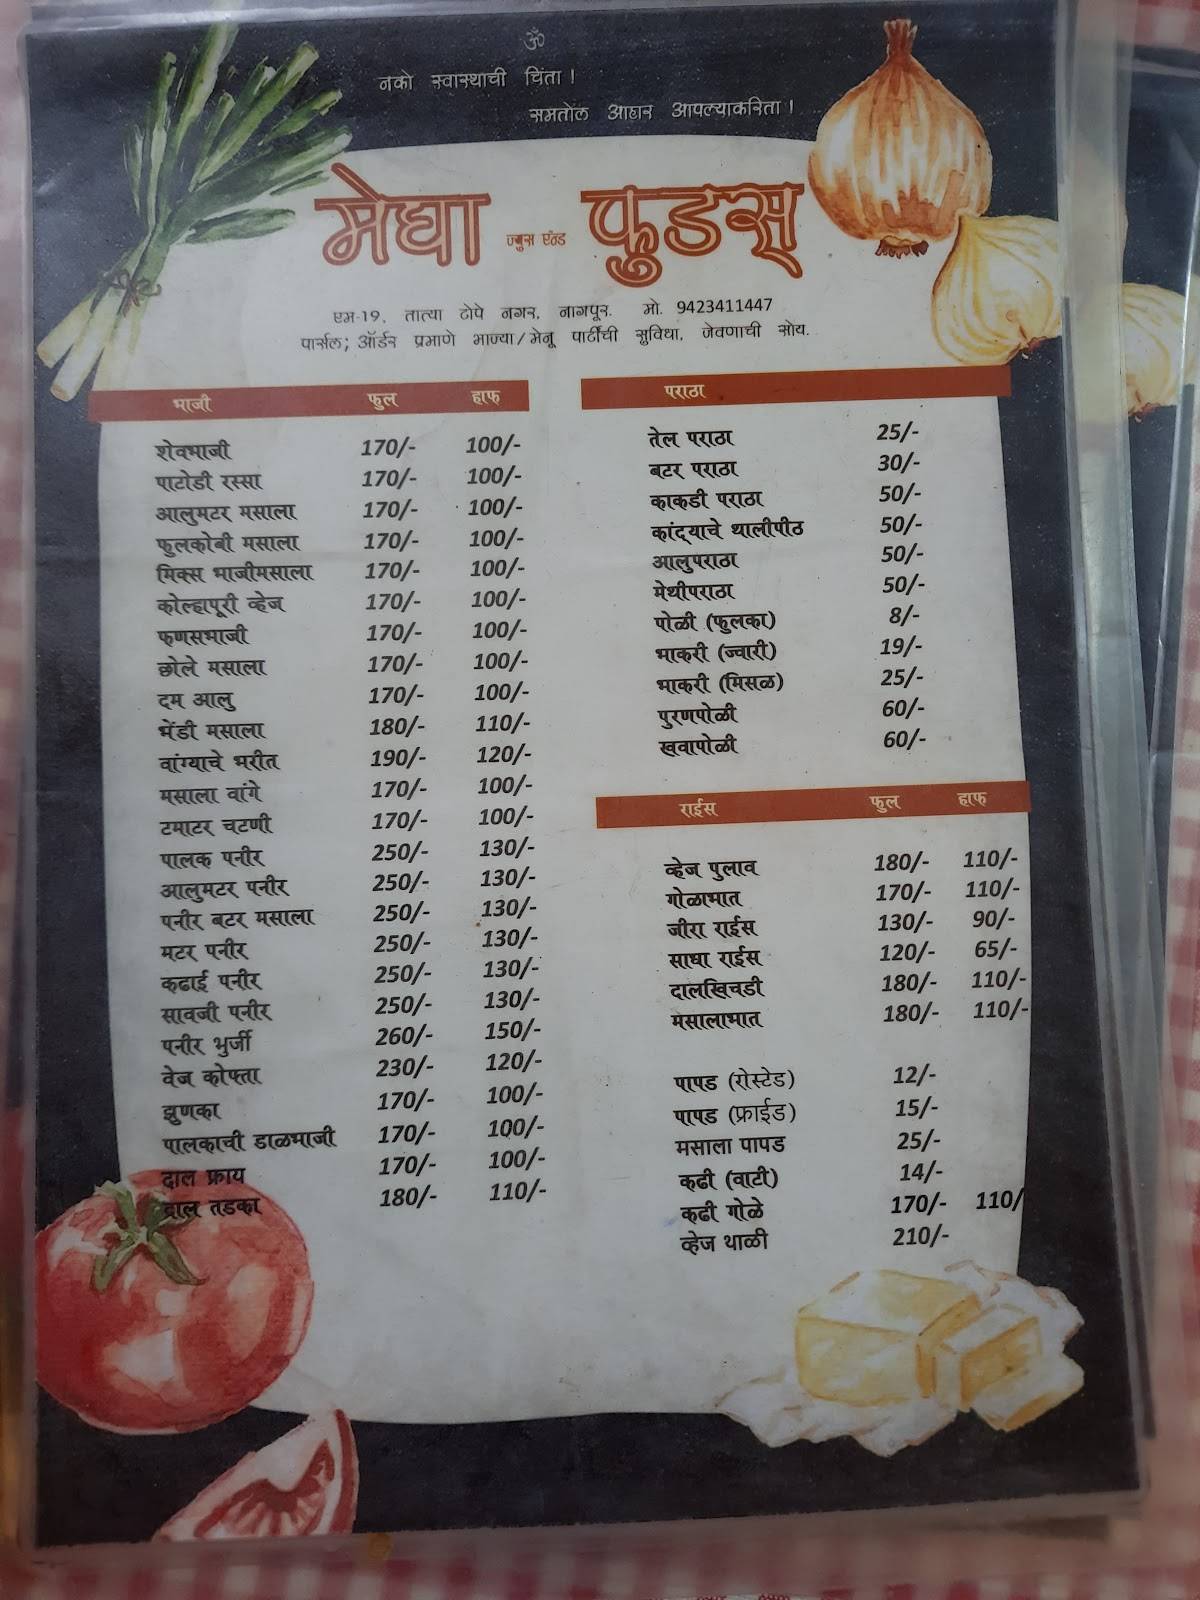 ॐ
नको स्वास्थाची चिंता !
समतोल आहार आपल्याकरिता !
मेघा ज्युस ऍन्ड फुडस्
एम-19, तात्या टोपे नगर, नागपूर. मो. 9423411447
पार्सल; ऑर्डर प्रमाणे भाज्या/मेनू पार्टीची सुविधा, जेवणाची सोय.
भाजी फुल हाफ
शेवभाजी 170/- 100/-
पाटोडी रस्सा 170/- 100/-
आलुमटर मसाला 170/- 100/-
फुलकोबी मसाला 170/- 100/-
मिक्स भाजीमसाला 170/- 100/-
कोल्हापूरी व्हेज 170/- 100/-
फणसभाजी 170/- 100/-
छोले मसाला 170/- 100/-
दम आलु 170/- 100/-
भेंडी मसाला 180/- 110/-
वांग्याचे भरीत 190/- 120/-
मसाला वांगे 170/- 100/-
टमाटर चटणी 170/- 100/-
पालक पनीर 250/- 130/-
आलुमटर पनीर 250/- 130/-
पनीर बटर मसाला 250/- 130/-
मटर पनीर 250/- 130/-
कढाई पनीर 250/- 130/-
सावजी पनीर 250/- 130/-
पनीर भुर्जी 260/- 150/-
वेज कोफ्ता 230/- 120/-
झुणका 170/- 100/-
पालकाची डाळभाजी 170/- 100/-
दाल फ्राय 170/- 100/-
दाल तडका 180/- 110/-
पराठा
तेल पराठा 25/-
बटर पराठा 30/-
काकडी पराठा 50/-
कांद्याचे थालीपीठ 50/-
आलुपराठा 50/-
मेथीपराठा 50/-
पोळी (फुलका) 8/-
भाकरी (ज्वारी) 19/-
भाकरी (मिसळ) 25/-
पुरणपोळी 60/-
खवापोळी 60/-
राईस फुल हाफ
व्हेज पुलाव 180/- 110/-
गोळाभात 170/- 110/-
जीरा राईस 130/- 90/-
साधा राईस 120/- 65/-
दालखिचडी 180/- 110/-
मसालाभात 180/- 110/-
पापड (रोस्टेड) 12/-
पापड (फ्राईड) 15/-
मसाला पापड 25/-
कढी (वाटी) 14/-
कढी गोळे 170/- 110/
व्हेज थाळी 210/-